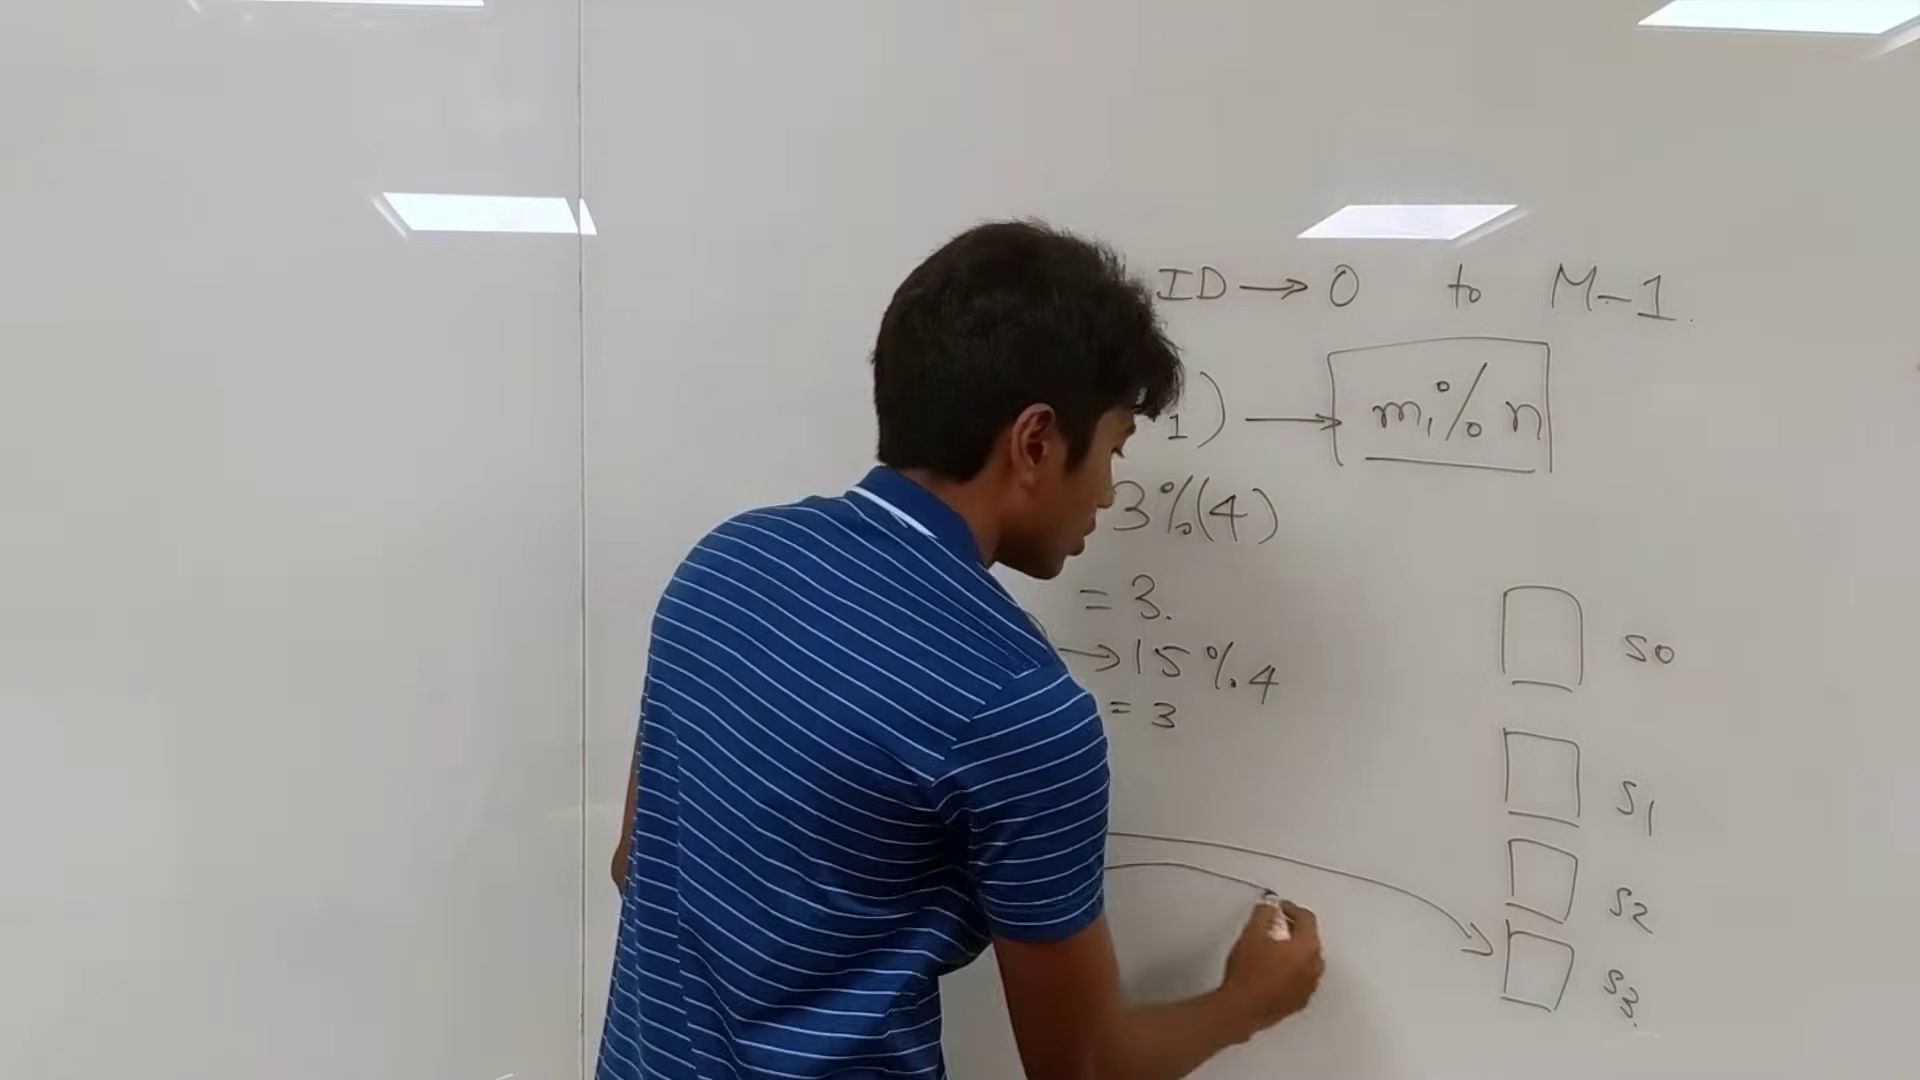 ID → 0 to M-1.
1) → m1 % n
3%(4)
= 3.
→ 15%4
= 3
S0
S1
S2
S3.